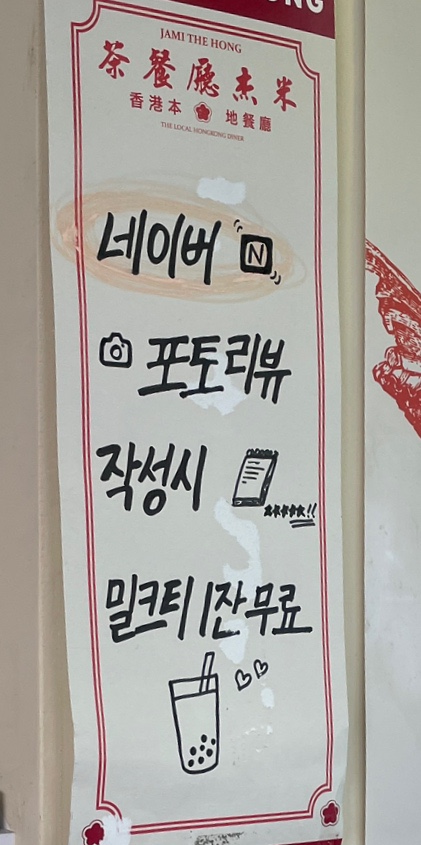 ONG
JAMI THE HONG
茶餐廳杰米
香港本 地餐廳
THE LOCAL HONGKONG DINER
네이버 N
포토리뷰
작성시
★★★★★!!
밀크티 1잔 무료